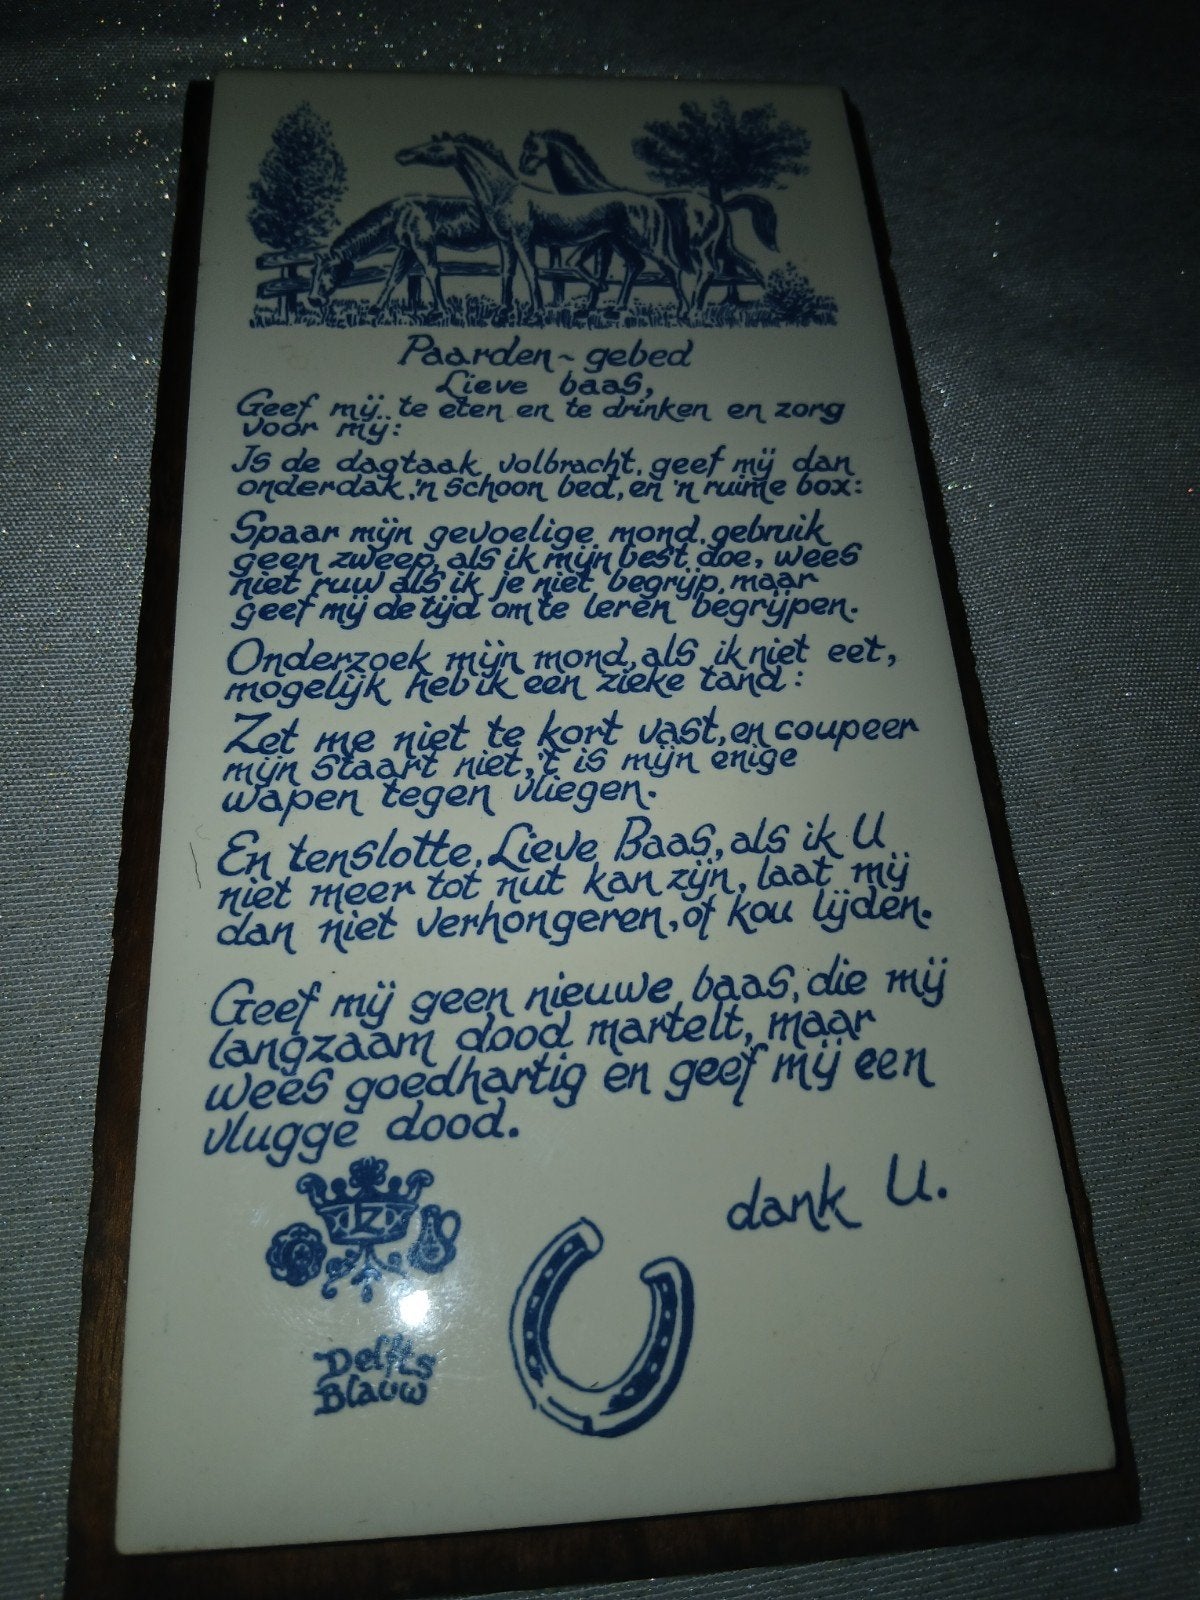 Paarden~gebed
Lieve baas,
Geef mij te eten en te drinken en zorg
voor mij:
Is de dagtaak volbracht, geef mij dan
onderdak, 'n schoon bed, en 'n ruime box:
Spaar mijn gevoelige mond, gebruik
geen zweep, als ik mijn best doe, wees
niet ruw als ik je niet begrijp, maar
geef mij de tijd om te leren begrijpen.
Onderzoek mijn mond, als ik niet eet,
mogelijk heb ik een zieke tand:
Zet me niet te kort vast, en coupeer
mijn staart niet, 't is mijn enige
wapen tegen vliegen.
En tenslotte, Lieve Baas, als ik U
niet meer tot nut kan zijn, laat mij
dan niet verhongeren, of kou lijden.
Geef mij geen nieuwe baas, die mij
langzaam dood martelt, maar
wees goedhartig en geef mij een
vlugge dood.
dank U.
Delfts
Blauw